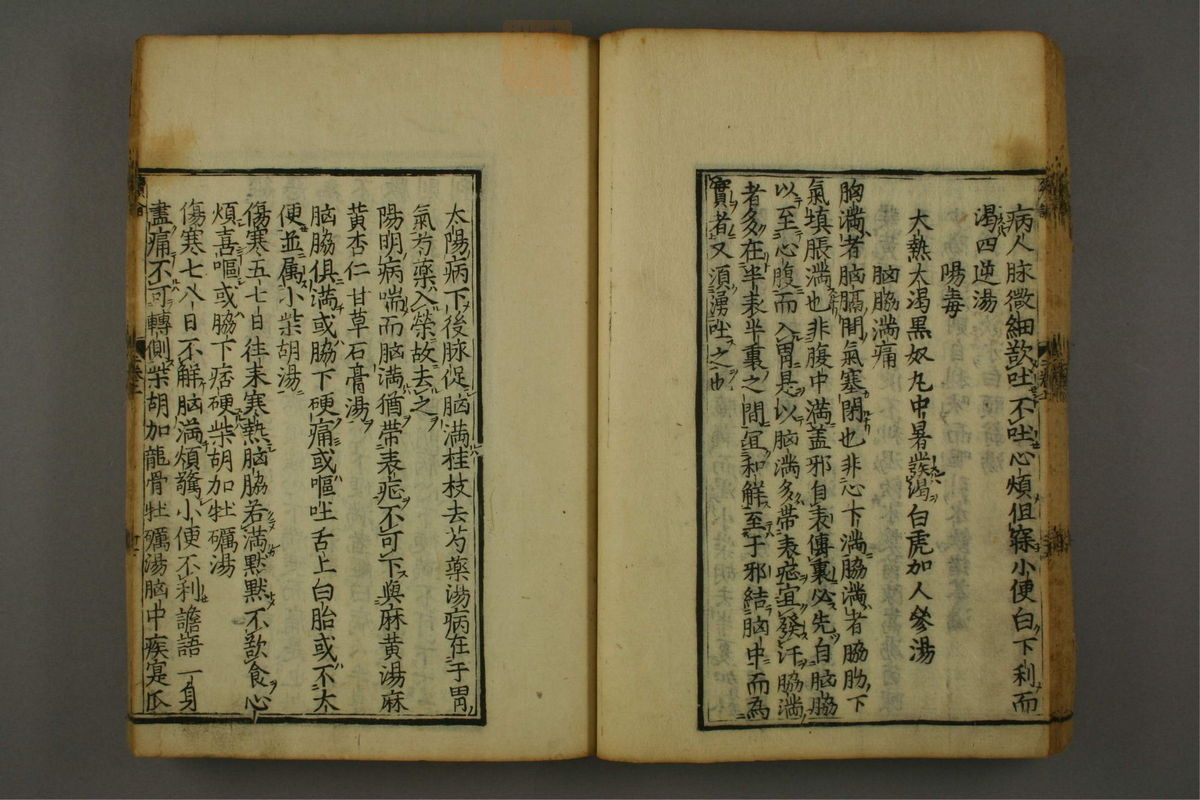 病人脉微細欲吐不吐心煩但寐小便白下利而
渴四逆湯
陽毒
大熱太渴黒奴丸中暑發渴白虎加人參湯
脑脇満痛
胸満者脑膈間氣塞閉也非心下満脇満者脇肋下
氣填脹満也非腹中満盖邪自表傳裏必先自脑脇
以至心腹而入胃是以脑満多帶表症宜發汗脇満
者多在半表半裏之間宜和解至于邪結脑中而為
實者又須湧吐之也
太陽病下後脉促脑満桂枝去芍薬湯病在于胃
氣芍薬入榮故去之
陽明病喘而脑満猶帶表症不可下與麻黄湯麻
黄杏仁甘草石膏湯
脑脇俱満或脇下硬痛或嘔吐舌上白胎或不大
便並属小柴胡湯
傷寒五七日往来寒熱脑脇若満黙黙不欲食心
煩喜嘔或脇下痞硬柴胡加牡礪湯
傷寒七八日不解脑満煩驚小便不利譫語一身
盡痛不可轉側柴胡加龍骨牡礪湯脑中痰寔瓜